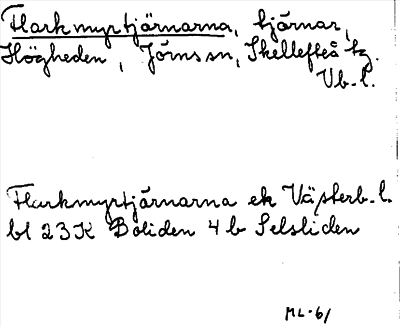 Flarkmyrtjärnarna, tjärnar,
Högheden, Jörns sn, Skellefteå tg.
Vb. l.
Flarkmyrtjärnarna ek Västerb. l.
bl 23K Boliden 4 b Selsliden
ML-61